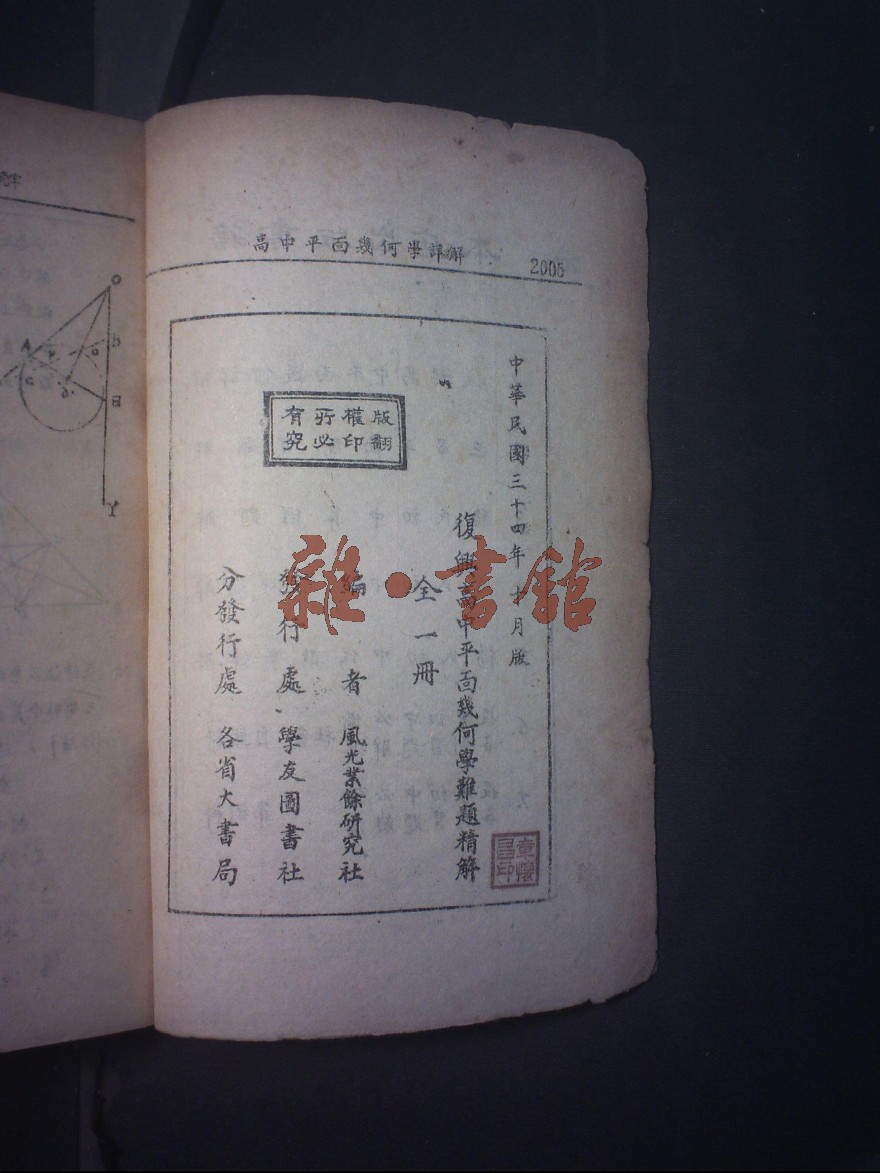 高中平面幾何學詳解
2005
中華民國三十四年十月版
復興高中平面幾何學難題精解
全一冊
版權所有
翻印必究
編者 風光業餘研究社
發行處 學友圖書社
分發行處 各省大書局
雜·書館
O
A
B
Y